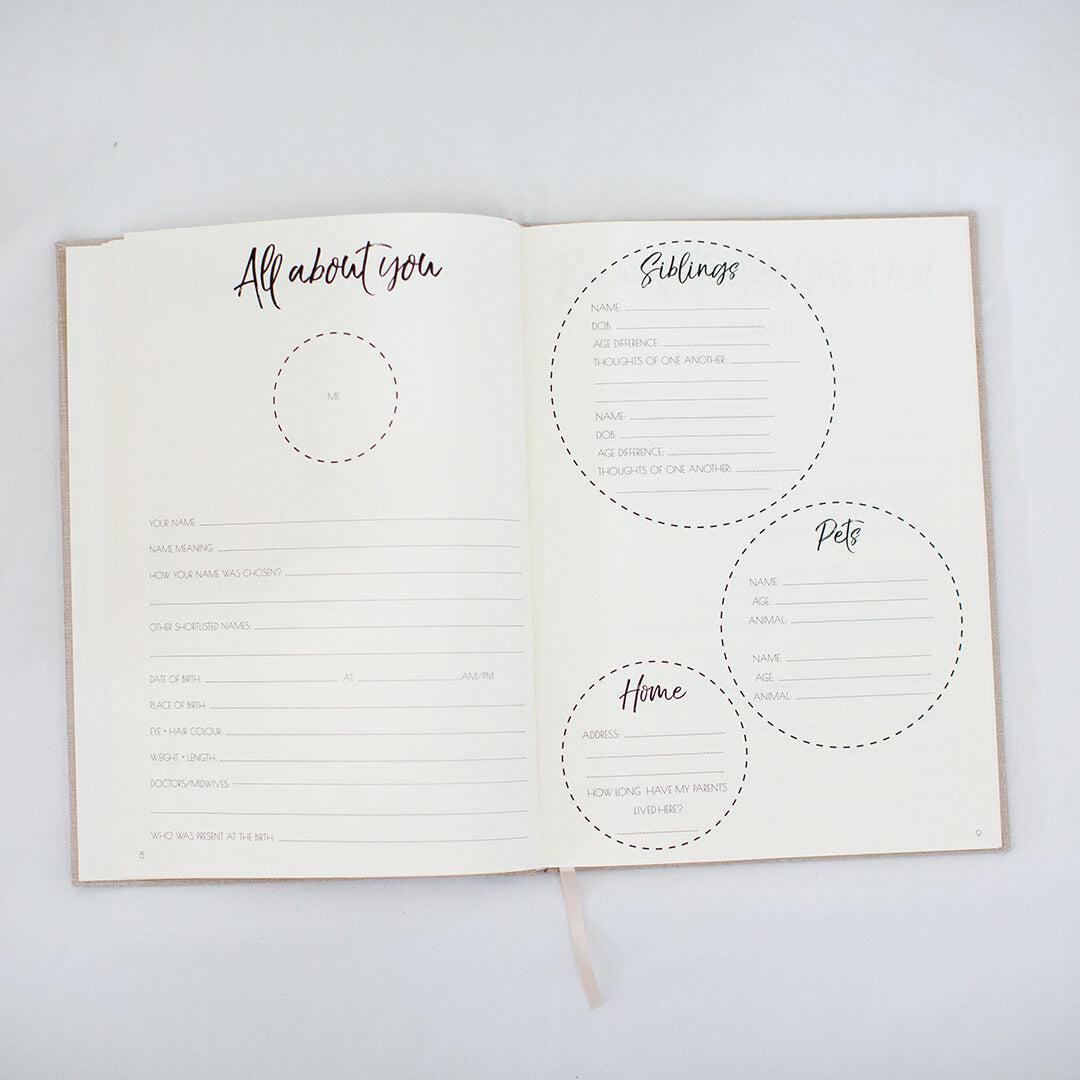 All about you
ME
YOUR NAME:
NAME MEANING:
HOW YOUR NAME WAS CHOSEN?
OTHER SHORTLISTED NAMES:
DATE OF BIRTH: AT: AM/PM
PLACE OF BIRTH:
EYE + HAIR COLOUR:
WEIGHT + LENGTH:
DOCTORS/MIDWIVES:
WHO WAS PRESENT AT THE BIRTH:
8
Siblings
NAME:
DOB:
AGE DIFFERENCE:
THOUGHTS OF ONE ANOTHER:
NAME:
DOB:
AGE DIFFERENCE:
THOUGHTS OF ONE ANOTHER:
Pets
NAME:
AGE:
ANIMAL:
NAME:
AGE:
ANIMAL:
Home
ADDRESS:
HOW LONG HAVE MY PARENTS
LIVED HERE?
9